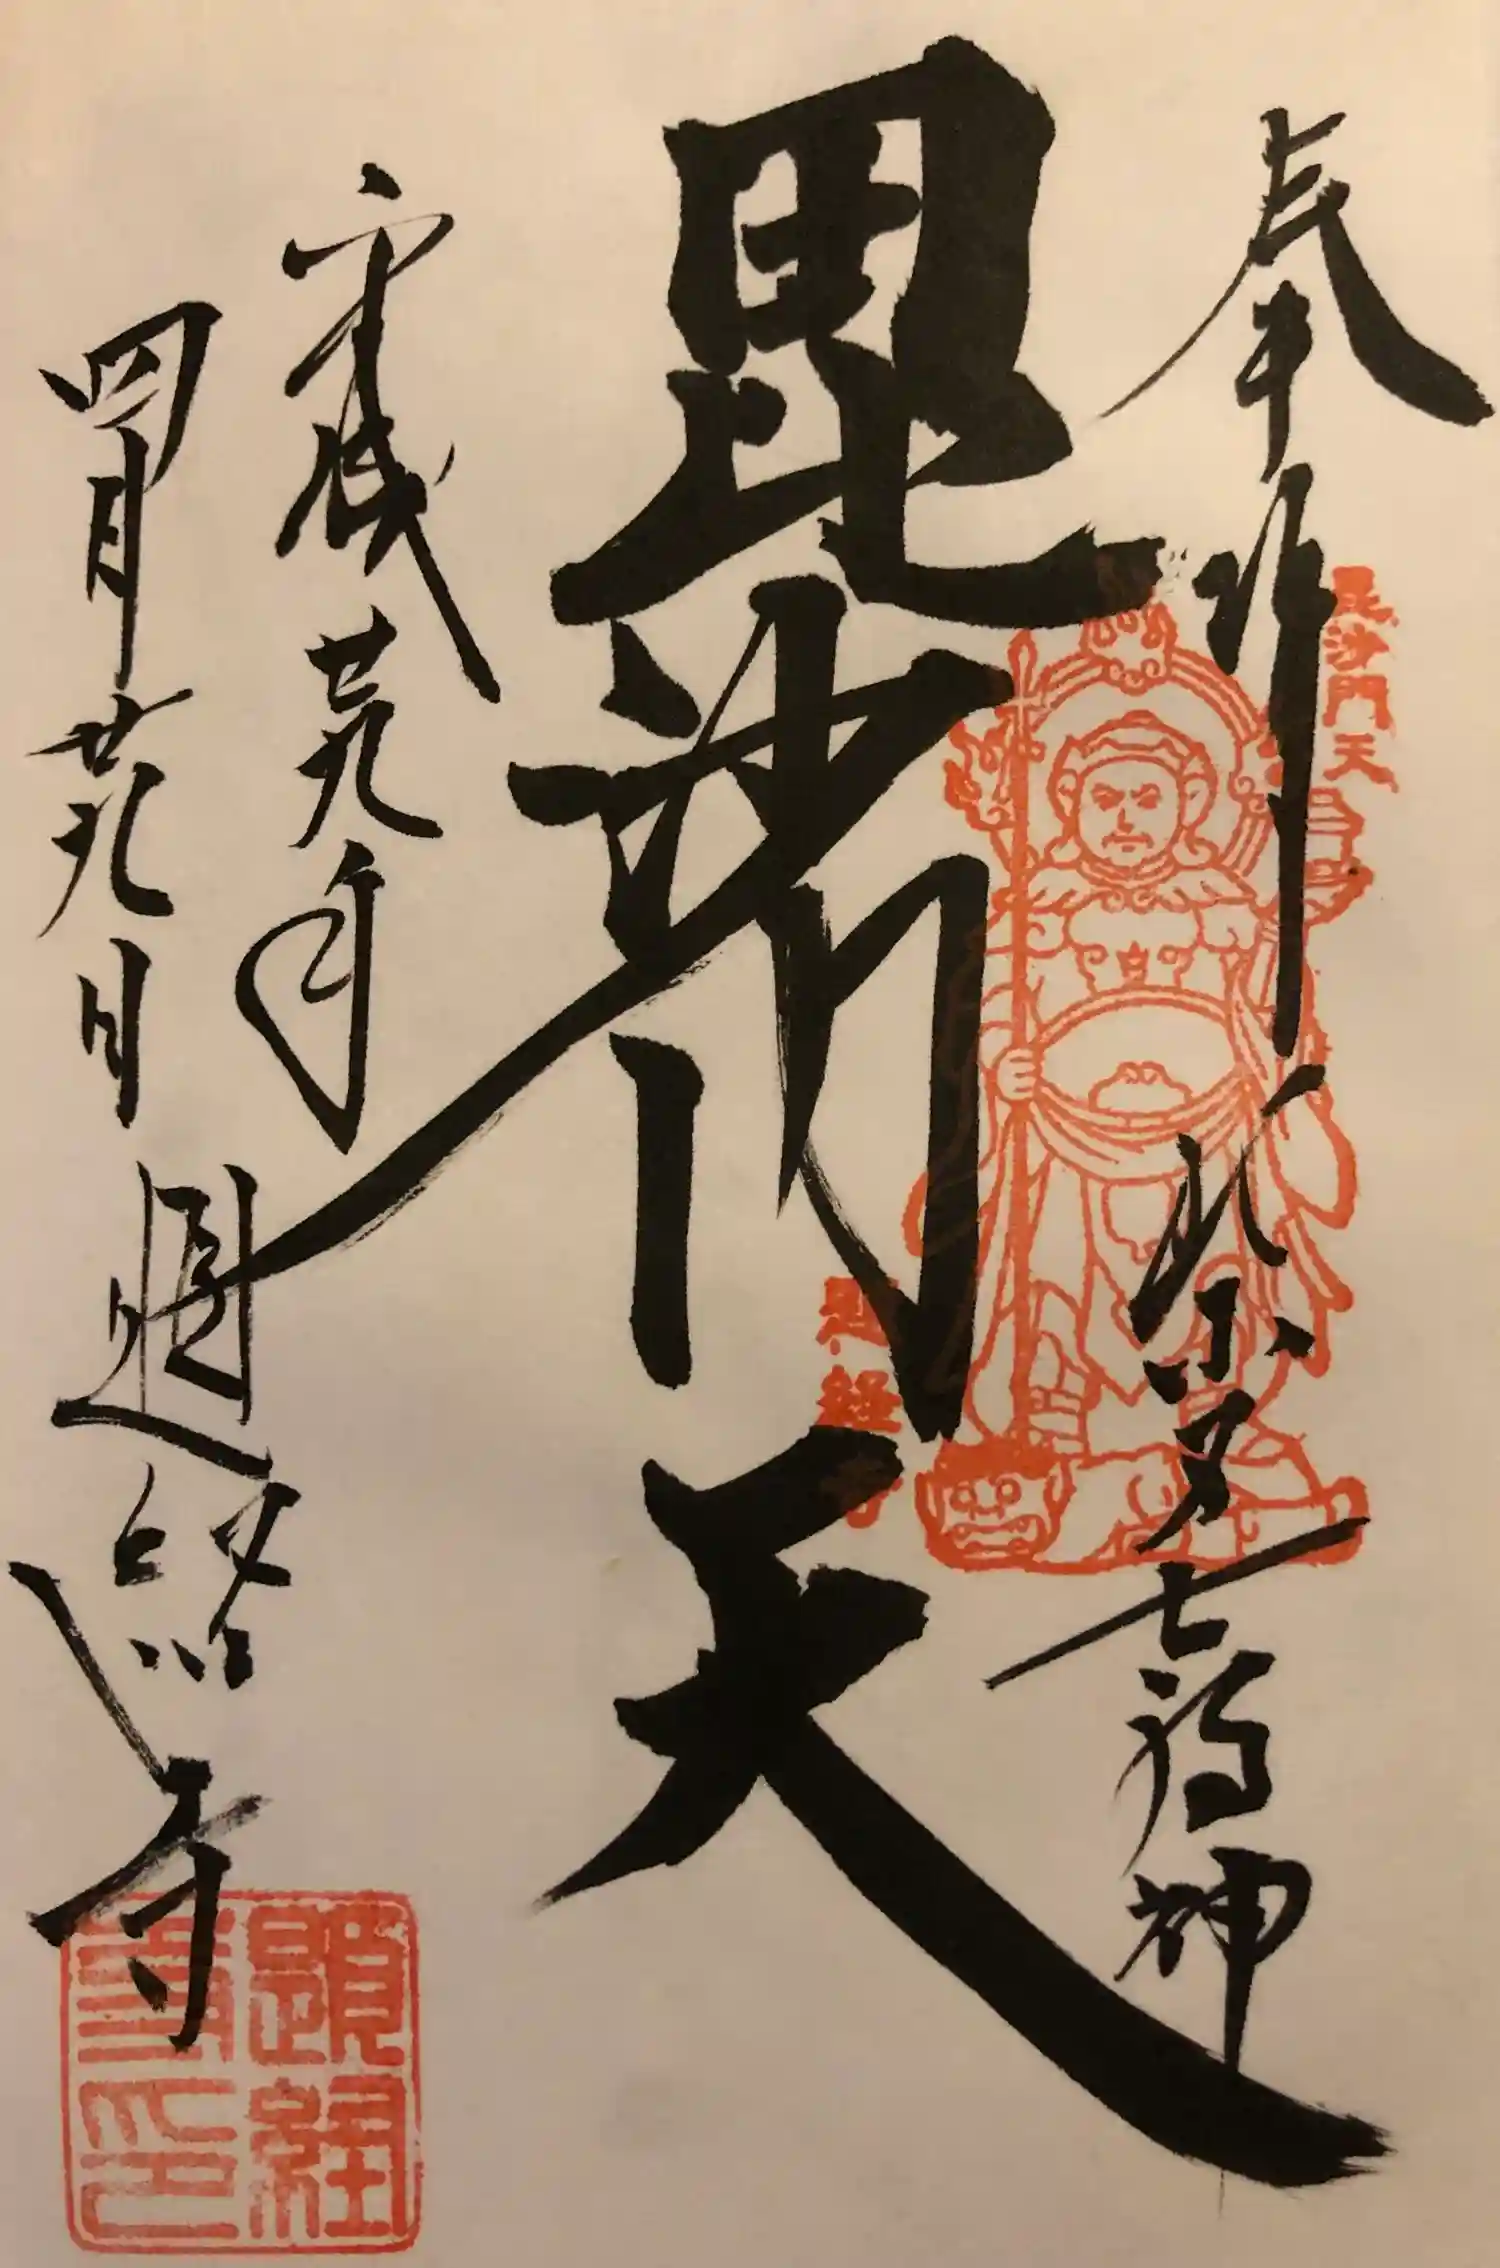 奉拝 柴又七福神
毘沙門天
平成廿九年
四月廿九日 題経寺
毘沙門天
題経寺
題経
寺印